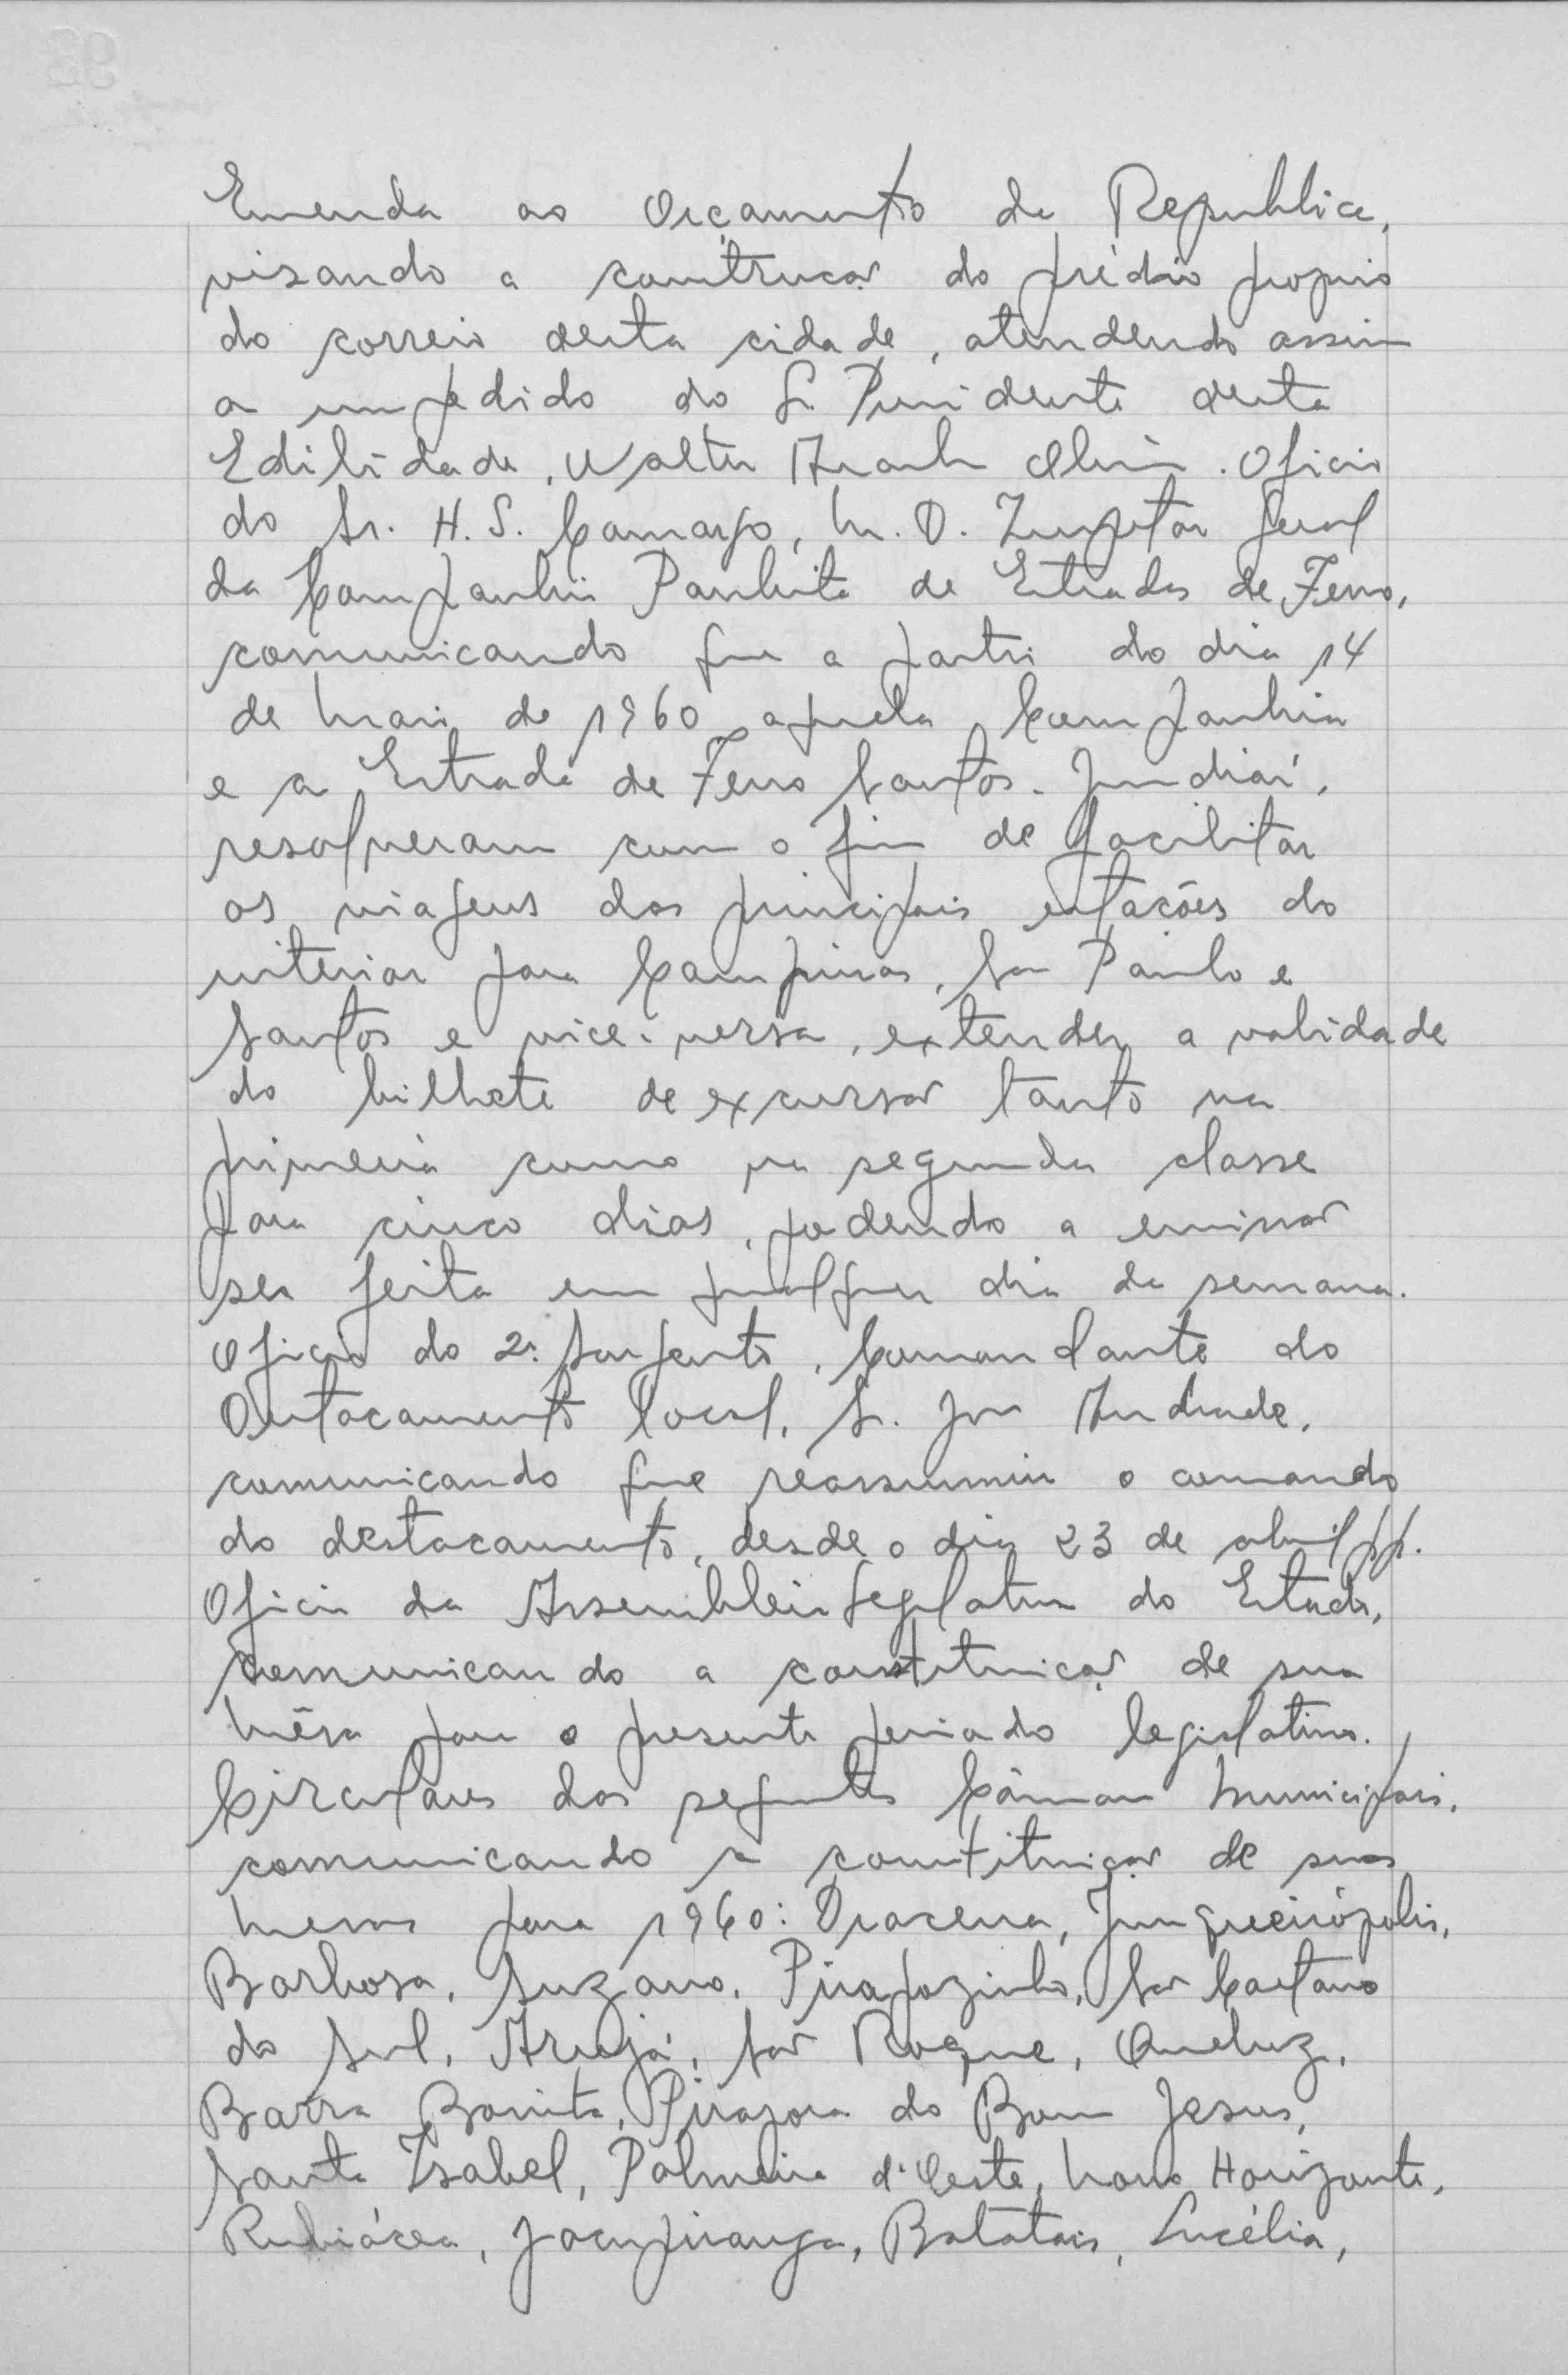 Emenda ao Orçamento da Republica,
visando a construção do prédio proprio
do correio desta cidade, atendendo assim
a um pedido do Sr. Presidente desta
Edilidade, Walter
Oficio
do Sr. H. S. Camargo, M. D. Inspetor Geral
da Companhia Paulista de Estradas de Ferro,
comunicando que a partir do dia 14
de Maio de 1960 aquela Companhia
e a Estrada de Ferro Santos-Jundiaí,
resolveram com o fim de facilitar
as viagens das principais estações do
interior para Campinas, São Paulo e
Santos e vice-versa, extender a validade
do bilhete de excursão tanto na
primeira como na segunda classe
para cinco dias, podendo a emissão
ser feita em qualquer dia da semana.
Oficio do 2º Sargento, Comandante do
Destacamento local, Sr. José Andrade,
comunicando que reassumiu o comando
do destacamento, desde o dia 23 de abril pp.
Oficio da Assembleia Legislativa do Estado,
comunicando a constituição de sua
Mêsa para o presente periodo legislativo.
Circulares das seguintes Câmaras Municipais,
comunicando a constituição de suas
mesas para 1960: Dracena, Junqueirópolis,
Barbosa, Suzano, Pirapozinho, São Caetano
do Sul, Arujá, São Roque, Queluz,
Barra Bonita, Pirapora do Bom Jesus,
Santa Isabel, Palmeira d'Oeste, Novo Horizonte,
Rubiácea, Jacupiranga, Batatais, Lucélia,